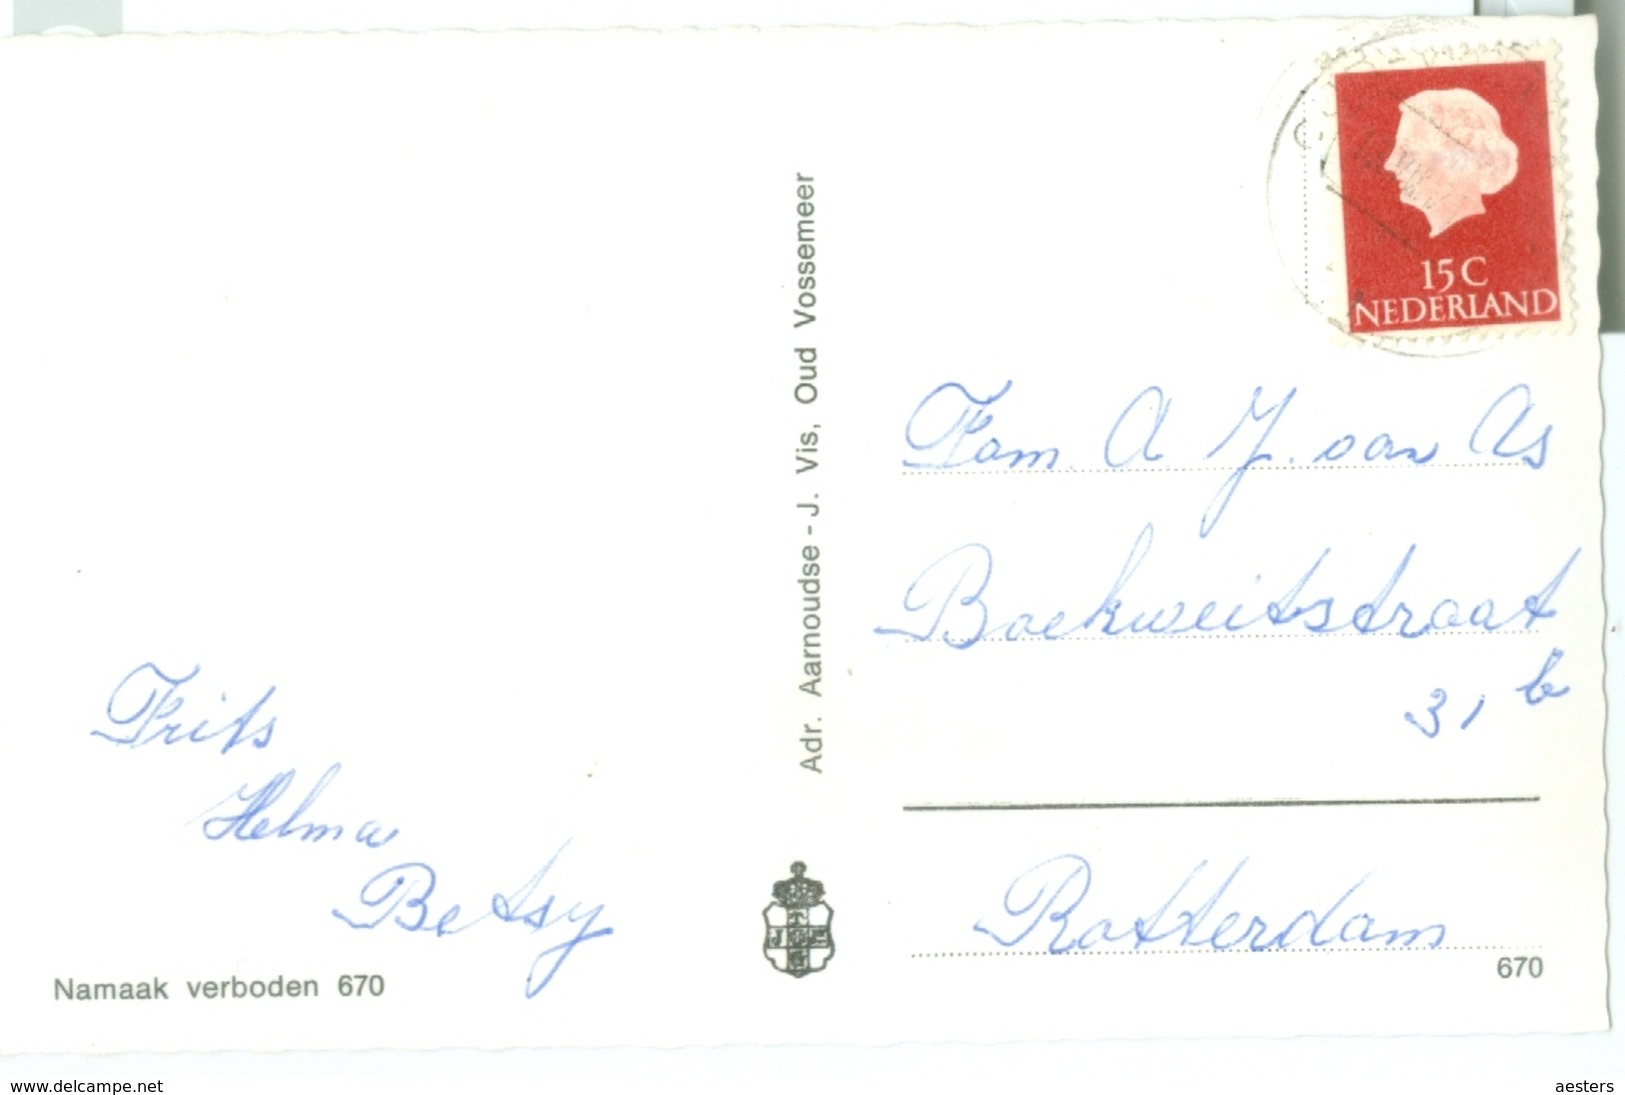 15 C
NEDERLAND
Adr. Aarnoudse - J. Vis, Oud Vossemeer
Fam. A. J. van As
Boekweitstraat
31 b
Rotterdam
670
Frits
Helma
Betsy
Namaak verboden 670
www.delcampe.net
aesters